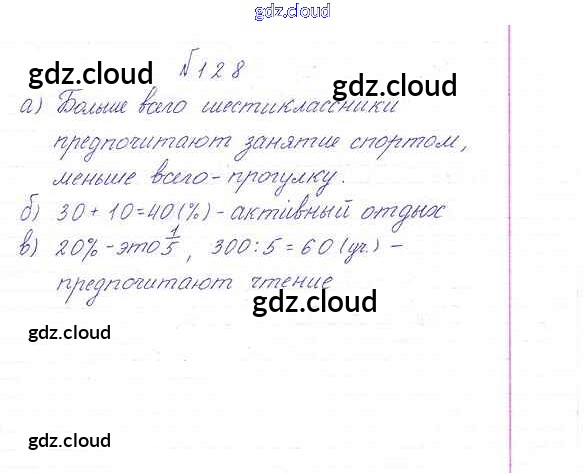 gdz.cloud
№128
gdz.cloud
gdz.cloud
а) Больше всего шестиклассники
предпочитают занятие спортом,
меньше всего - прогулку.
gdz.cloud
б) 30 + 10 = 40 (%) - активный отдых
в) 20% - это 1/5, 300 : 5 = 60 (уч.) –
предпочитают чтение
gdz.cloud
gdz.cloud
gdz.cloud
gdz.cloud